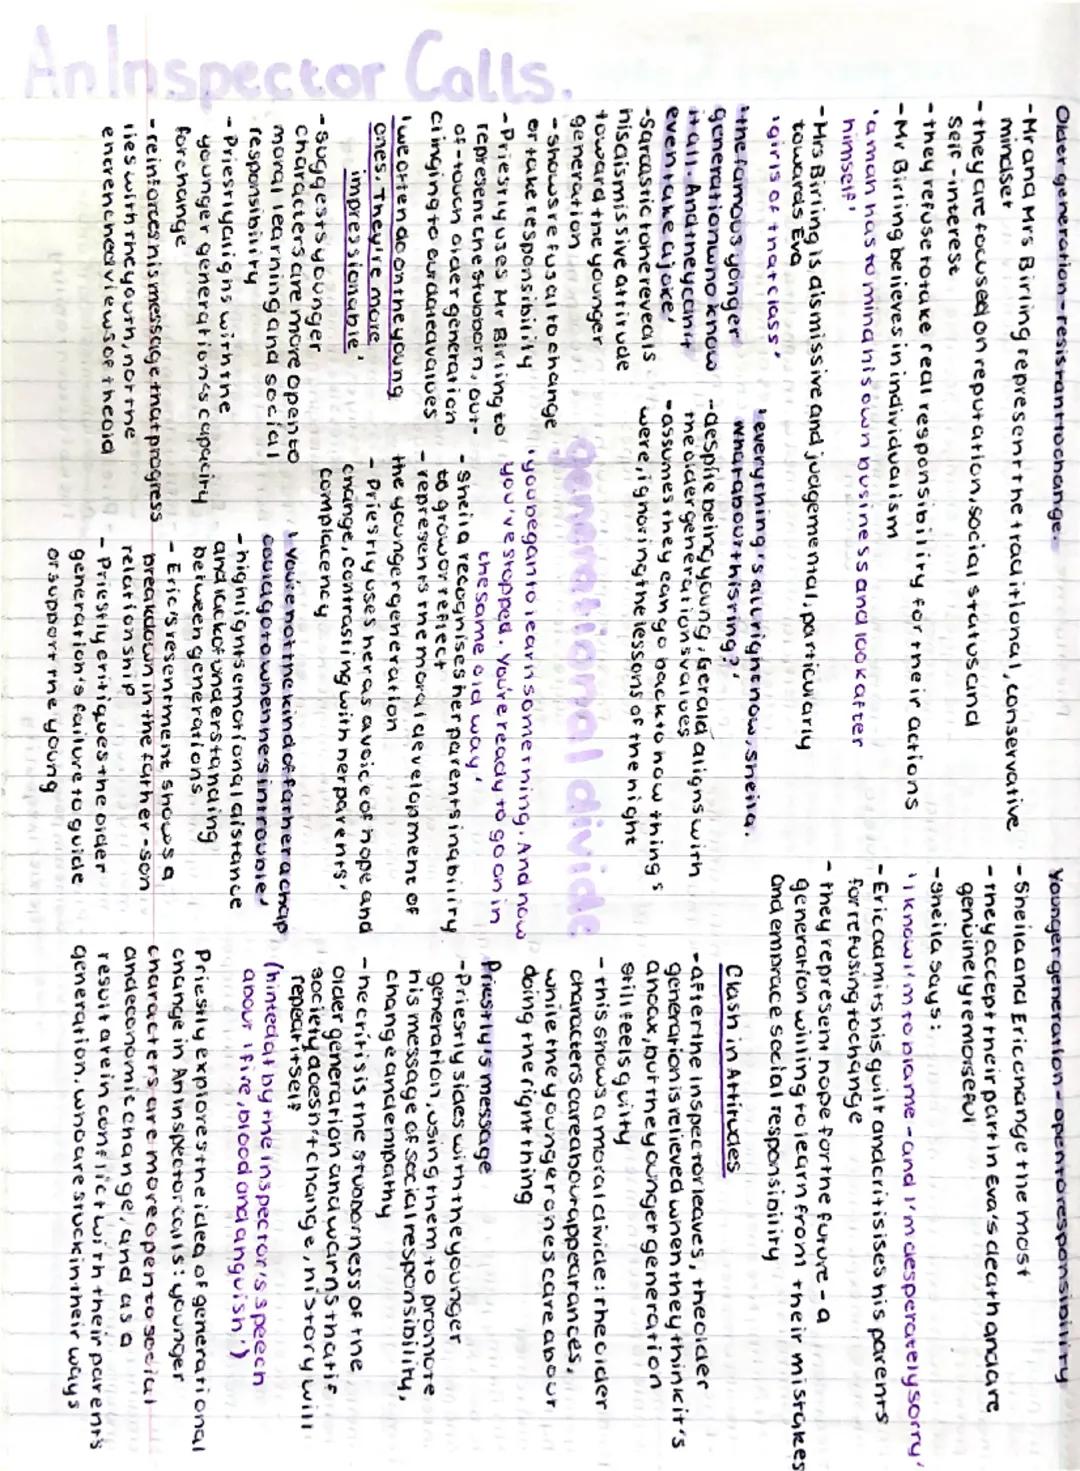 An Inspector Calls.
Older generation - resistant to change.
- Mr and Mrs Birling represent the traditional, conservative
mindset
- they are focused on reputation, social status and
self-interest
- they refuse to take real responsibility for their actions
- Mr Birling believes in individualism
'a man has to mind his own business and look after
himself'
- Mrs Birling is dismissive and judgemental, particularly
towards Eva
'girls of that class'
'the famous yonger
generation who know
it all. And they can't
even take a joke'
- sarcastic tone reveals
his dismissive attitude
toward the younger
generation
- shows refusal to change
or take responsibility
- Priestly uses Mr Birling to
represent the stubborn, out-
of-touch older generation
clinging to outdated values
'we often do on the young
ones. They're more
impressionable'
- suggests younger
characters are more open to
moral learning and social
responsibility
- Priestly aligns with the
younger generation's capacity
for change
- reinforces his message that progress
lies with the youth, not the
entrenched views of the old
'everything's alright now, Sheila.
What about this ring?'
- despite being young, Gerald aligns with
the older generations values
- assumes they can go back to how things
were, ignoring the lessons of the night
generational divide.
'you began to learn something. And now
you've stopped. You're ready to go on in
the same old way'
- Sheila recognises her parents inability
to grow or reflect
- represents the moral development of
the younger generation
- Priestly uses her as a voice of hope and
change, contrasting with her parents'
complacency
'You're not the kind of father a chap
could go to when he's in trouble'
- highlights emotional distance
and lack of understanding
between generations
- Eric's resentment shows a
breakdown in the father-son
relationship
- Priestly critiques the older
generation's failure to guide
or support the young
Younger generation - open to responsibility
- Sheila and Eric change the most
- they accept their part in Eva's death and are
genuinely remorseful
- Sheila says:
'I know I'm to blame - and I'm desperately sorry'
- Eric admits his guilt and critisises his parents
for refusing to change
- they represent hope for the future - a
generation willing to learn from their mistakes
and embrace social responsibility
Clash in Attitudes
- after the inspector leaves, the older
generation is relieved when they think it's
a hoax, but the younger generation
still feels guilty
- this shows a moral divide: the older
characters care about appearances,
while the younger ones care about
doing the right thing
Priestly's message
- Priestly sides with the younger
generation, using them to promote
his message of social responsibility,
change and empathy
- he critisis the stubborness of the
older generation and warns that if
society doesn't change, history will
repeat itself
(hinted at by the inspector's speech
about 'fire, blood and anguish')
Priestly explores the idea of generational
change in An Inspector Calls: younger
characters are more open to social
and economic change, and as a
result are in conflict with their parent's
generation, who are stuck in their ways